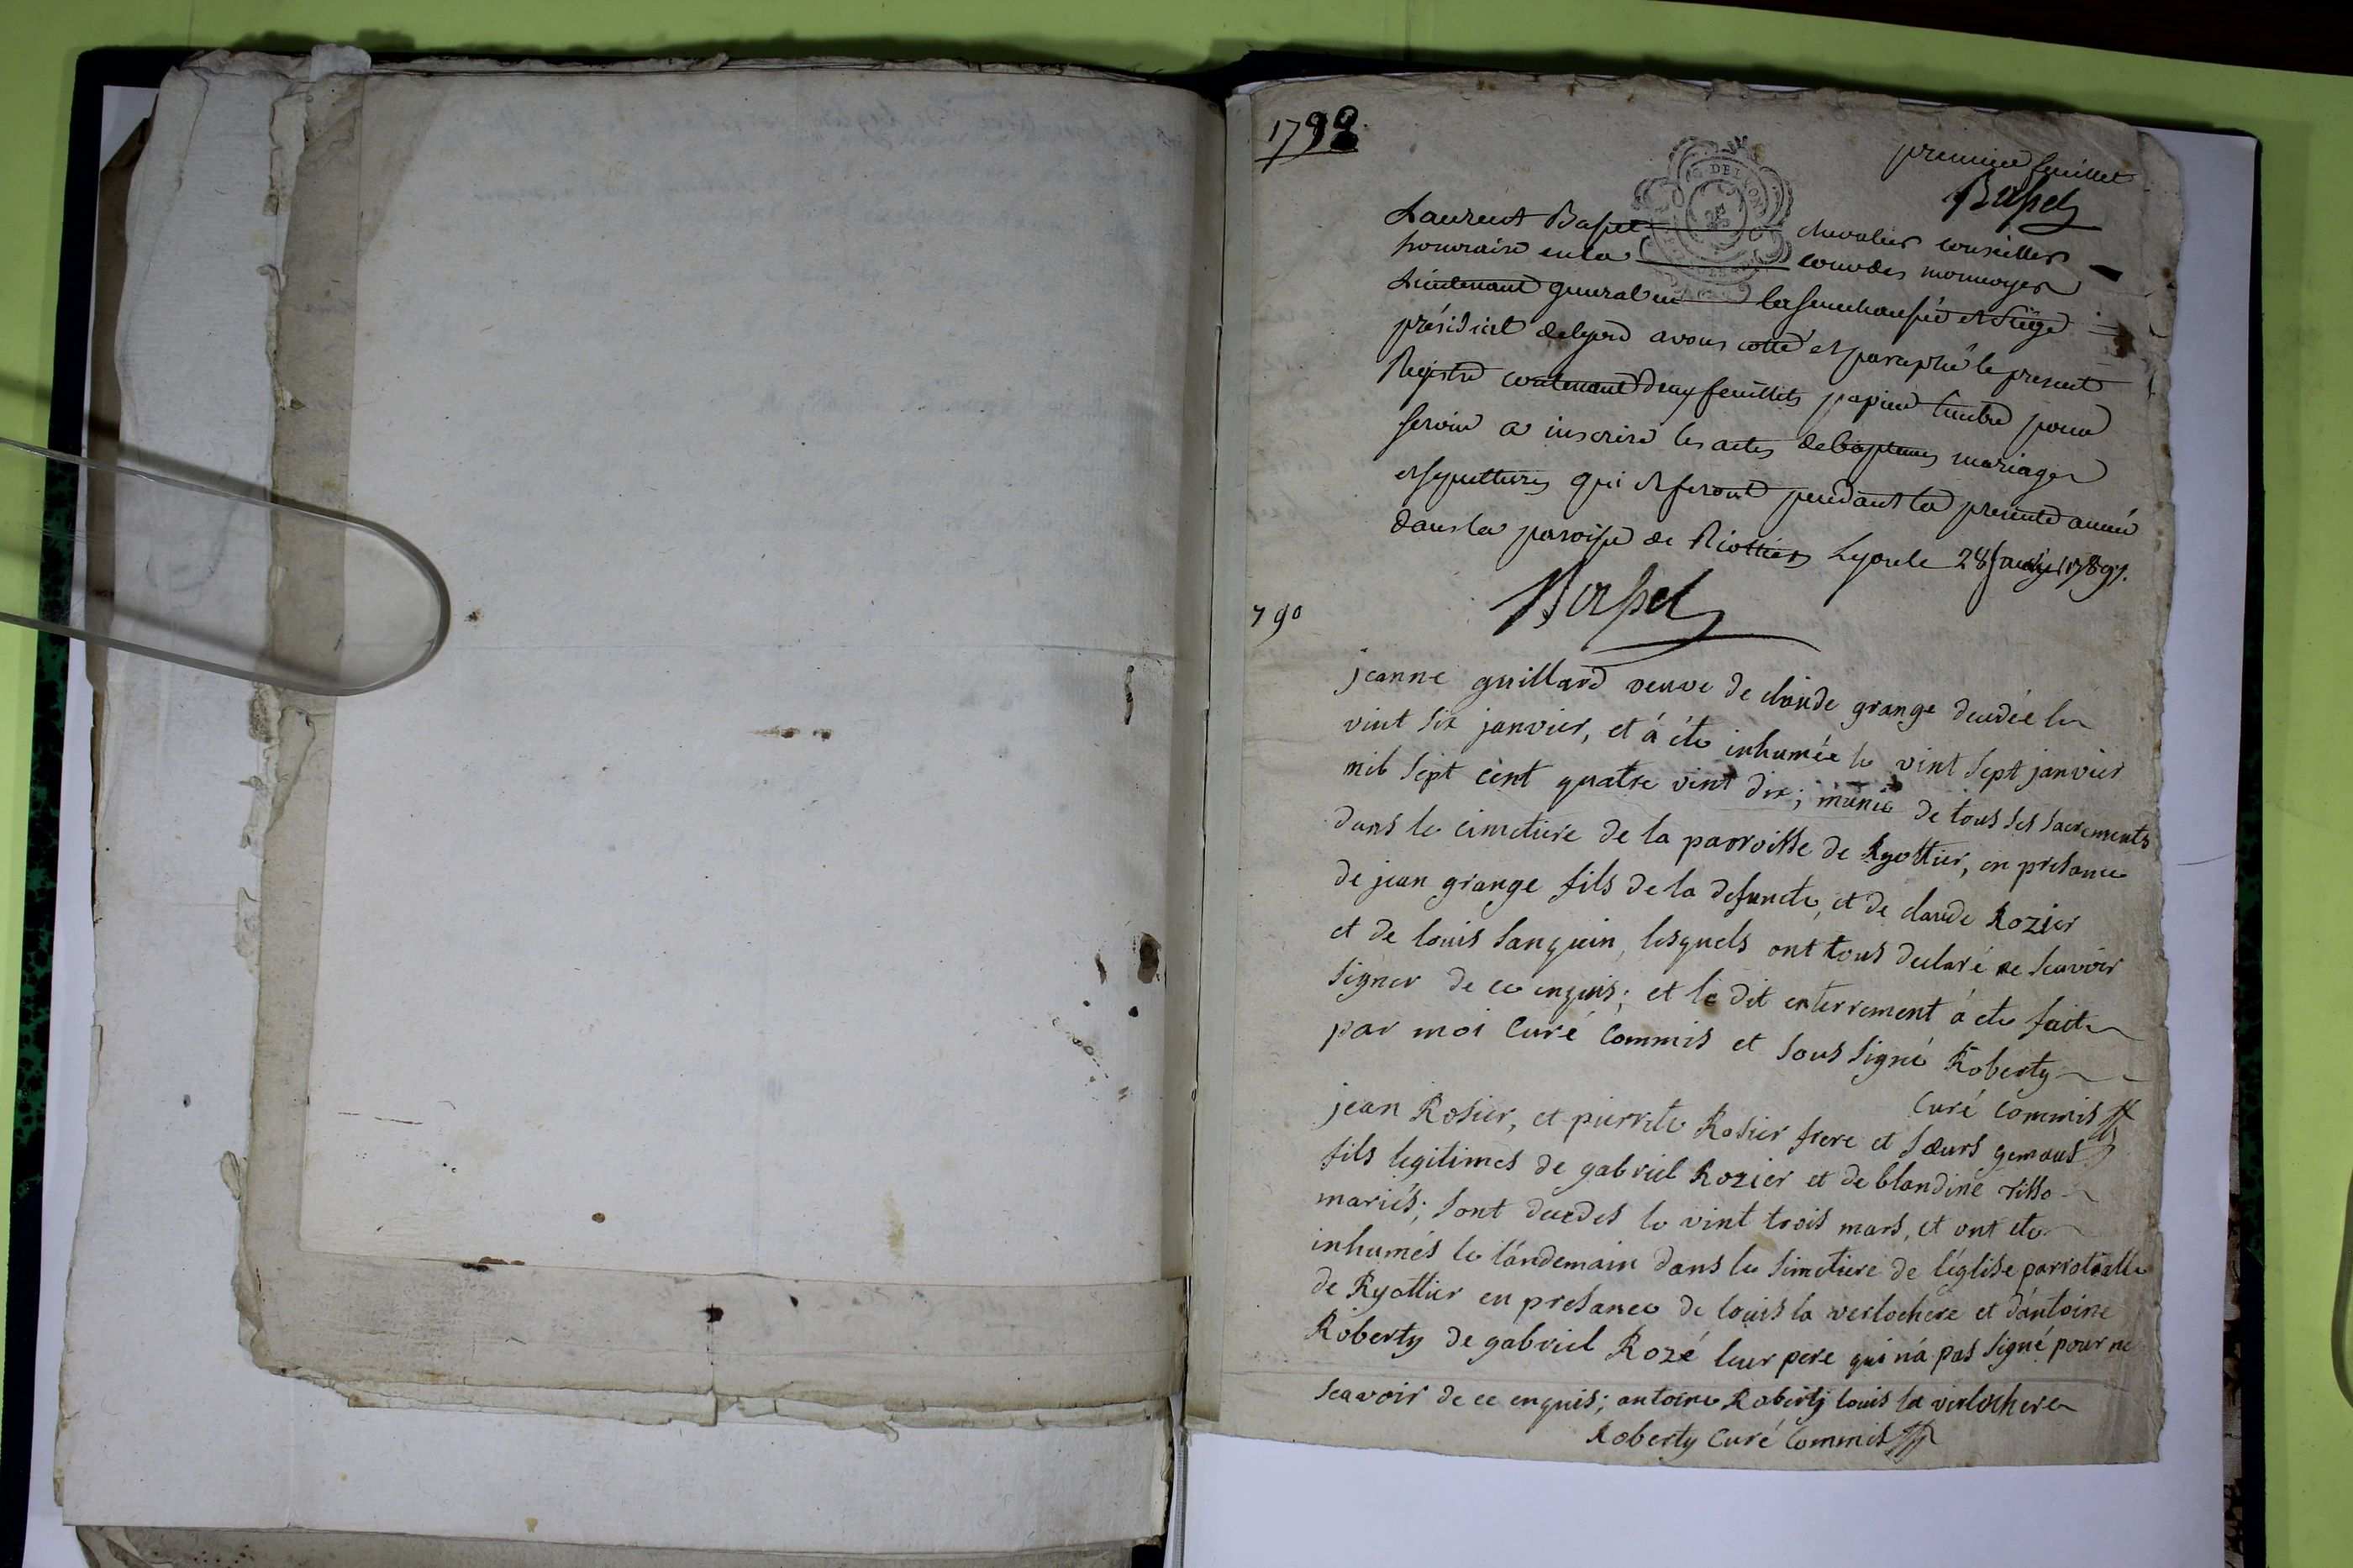 1790
premier feuillet
Basset
DE LYON
Laurent Basset chevalier conseiller
honoraire en la cour des monnoyes
Lieutenant general en la senechaussée et Siege
présidial de Lyon avons cotté et paraphé le present
Registre contenant deux feuillets papier timbré pour
servir a inscrire les actes de baptemes mariages
et sepultures qui se feront pendant la presente année
dans la paroisse de Riottiers Lyon le 28 1789.
Basset
790
jeanne guillard veuve de claude grange decedée le
vint six janvier, et á éte inhumée le vint sept janvier
mil sept cent quatre vint dix; munie de tous ses sacrements
dans le cimetiere de la parroisse de Ryottier, en presance
de jean grange fils de la defuncte, et de claude Rozier
et de louis sanguin, lesquels ont tous declaré ne scavoir
signer de ce enquis; et le dit enterrement á ete fait
par moi Curé Commis et sous signé Roberty
Curé Commis
jean Rosier, et pierrete Rosier frere et sœurs gemaus
fils legitimes de gabriel Rozier et de blandine
mariés; sont decedes le vint trois mars, et ont ete
inhumés le landemain dans le simetiere de l'église
de Ryottier en presance de louis la verlochere et d'antoine
Roberty de gabriel Rozé leur pere qui n'á pas signé pour ne
scavoir de ce enquis; antoine Roberty louis la verlochere
Roberty Curé Commis